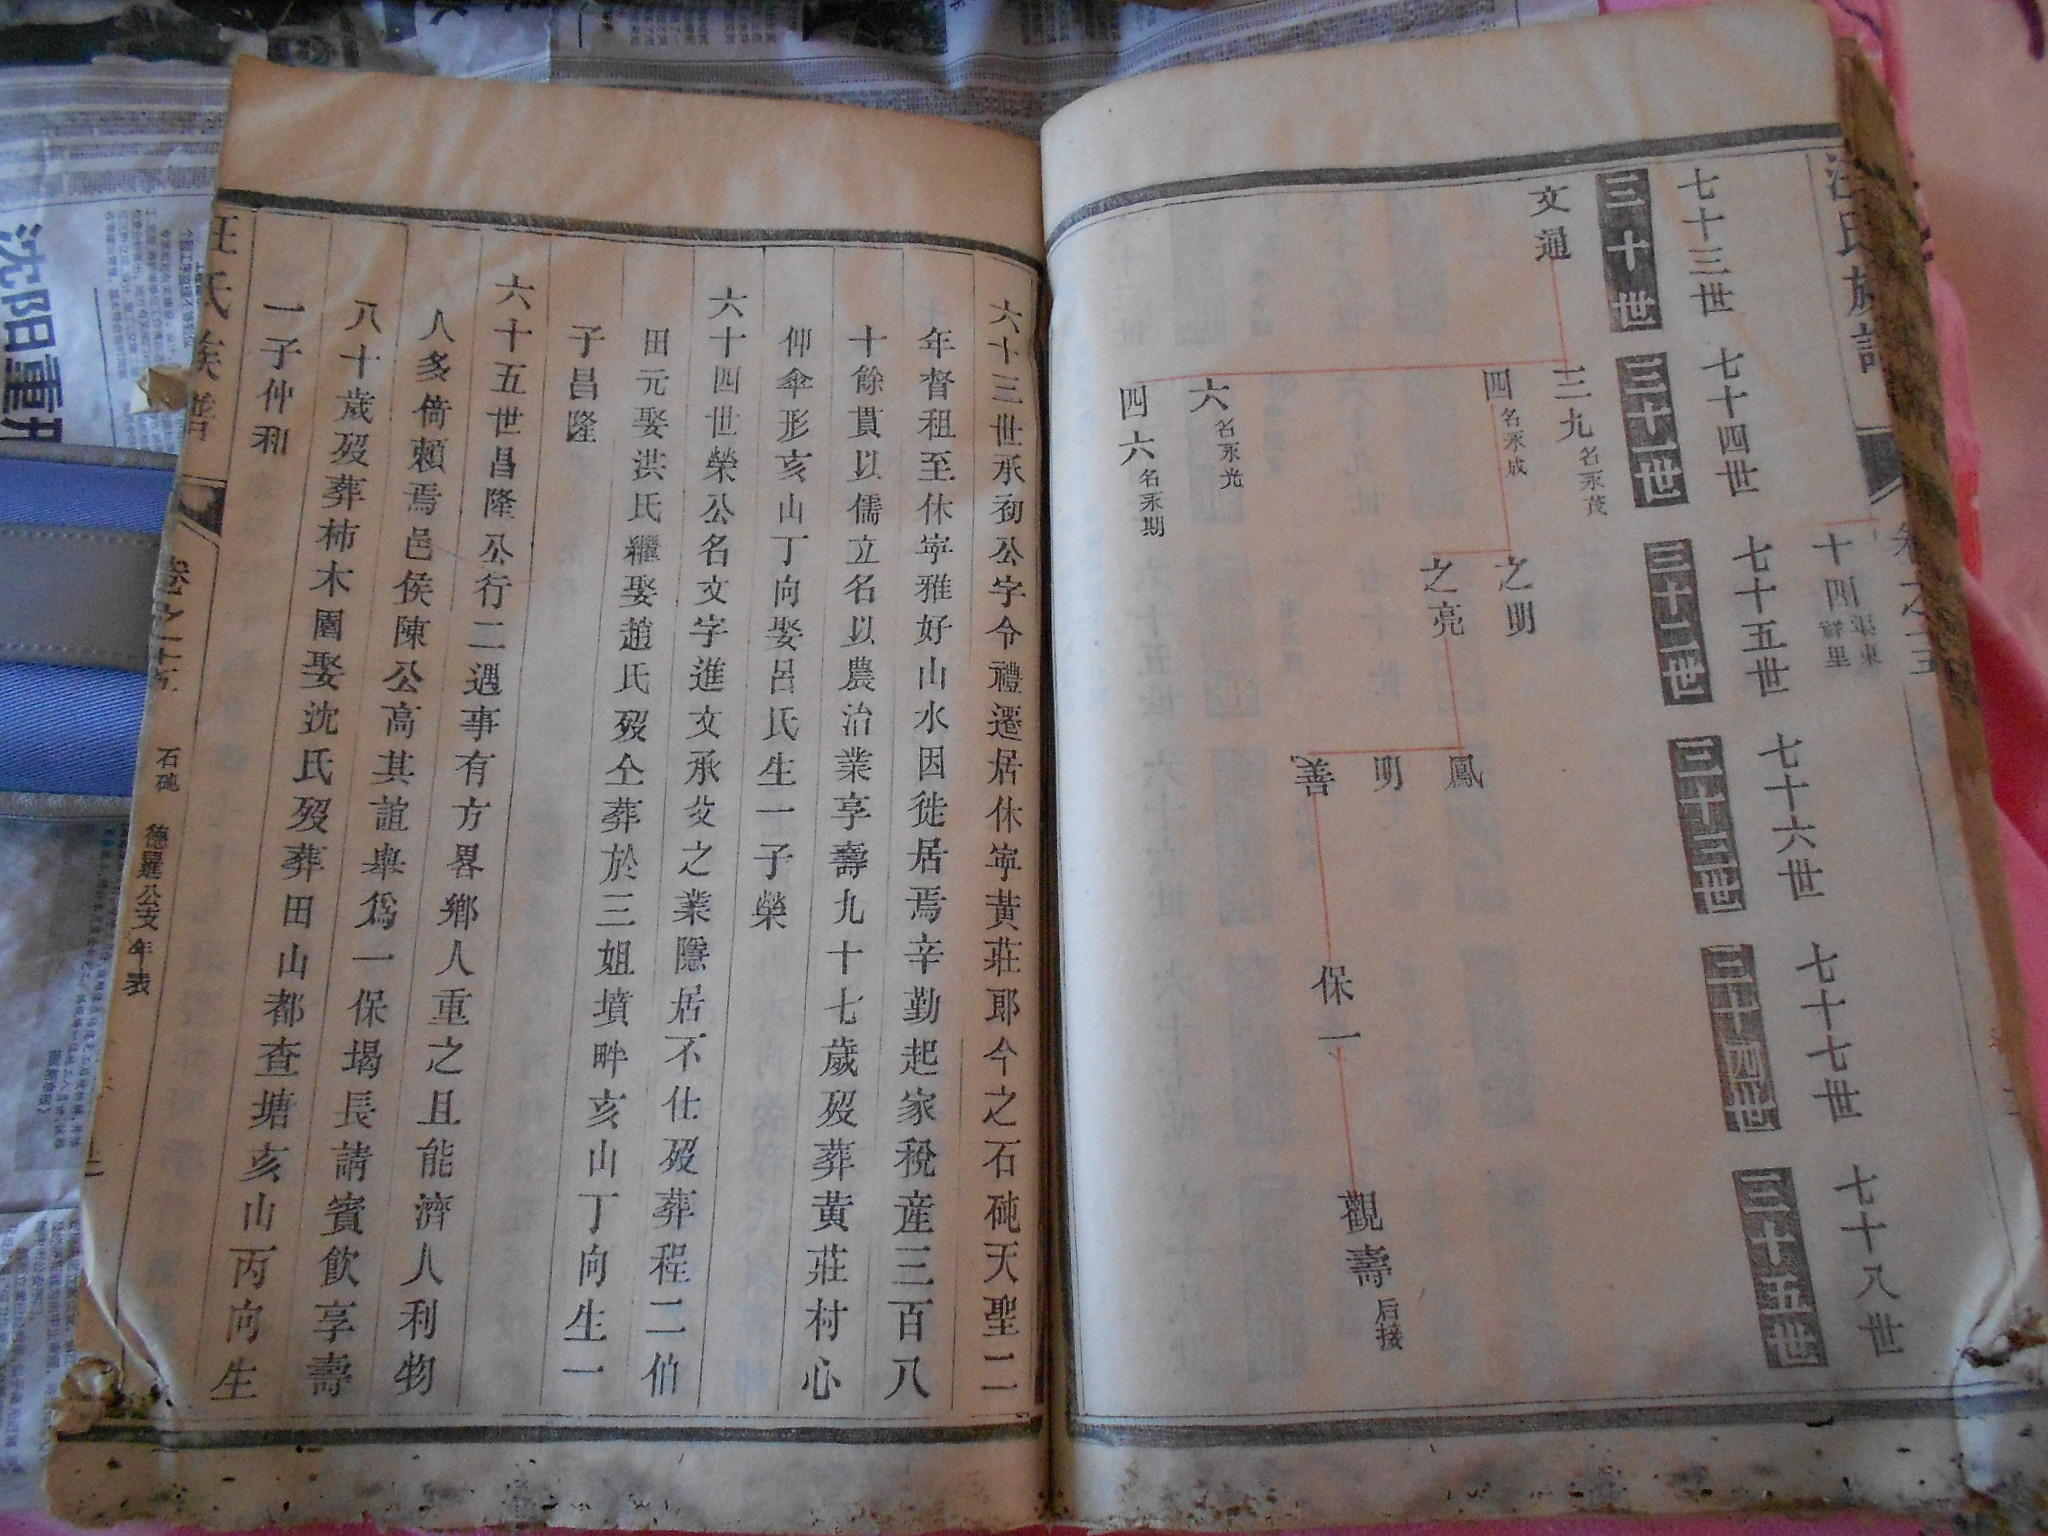 汪氏族譜
卷之十五
十四
七十三世
七十四世
七十五世
七十六世
七十七世
七十八世
三十世
三十一世
三十二世
三十三世
三十四世
三十五世
文通
三九名永茂
四名永成
六名永光
四六名永期
之明
之亮
鳳
明
善
保一
觀壽后接
六十三世承初公字令禮遷居休寧黃莊郎今之石砘天聖二
年督租至休寧雅好山水因徙居焉辛勤起家稅産三百八
十餘貫以儒立名以農治業享壽九十七歲歿葬黃莊村心
仰傘形亥山丁向娶呂氏生一子榮
六十四世榮公名文字進文承父之業隱居不仕歿葬程二伯
田元娶洪氏繼娶趙氏歿仝葬於三姐墳畔亥山丁向生一
子昌隆
六十五世昌隆公行二遇事有方畧鄉人重之且能濟人利物
人多倚賴焉邑侯陳公高其誼舉爲一保堨長請賓飲享壽
八十歲歿葬柿木園娶沈氏歿葬田山都查塘亥山丙向生
一子仲和
汪氏族譜
卷之十五
石砘
公支年表
沈阳重